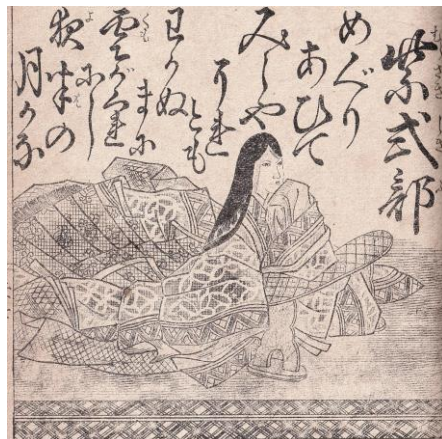 紫式部
めぐり
あひて
みしや
それ
とも
わかぬ
まに
雲がくれ
にし
夜半の
月かな